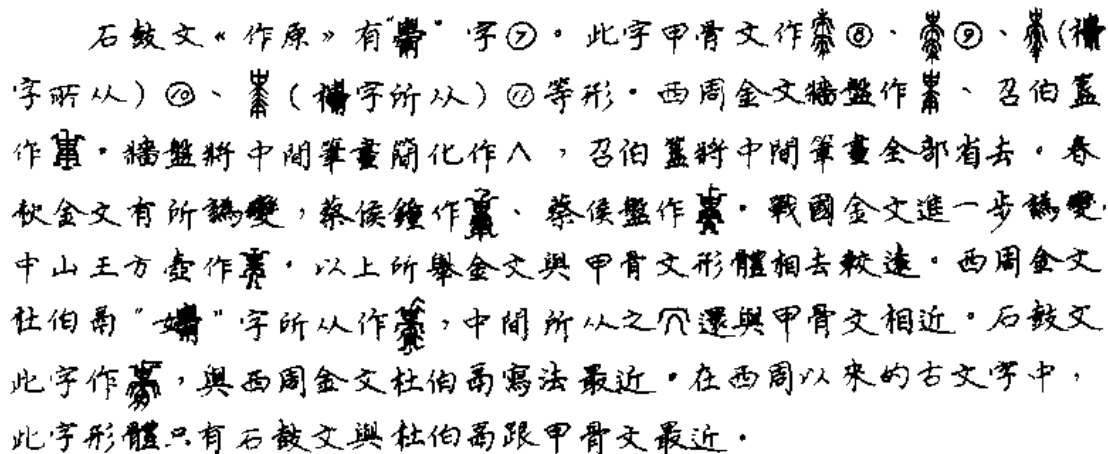 石鼓文《作原》有“”字⑦。此字甲骨文作⑧、⑨、(
字所从)⑩、(字所从)⑪等形。西周金文牆盤作、召伯簋
作。牆盤將中間筆畫簡化作八,召伯簋將中間筆畫全部省去。春
秋金文有所譌變,蔡侯鐘作、蔡侯盤作。戰國金文進一步譌變,
中山王方壺作。以上所舉金文與甲骨文形體相去較遠。西周金文
杜伯鬲“”字所从作,中間所从之還與甲骨文相近。石鼓文
此字作,與西周金文杜伯鬲寫法最近。在西周以來的古文字中,
此字形體只有石鼓文與杜伯鬲跟甲骨文最近。